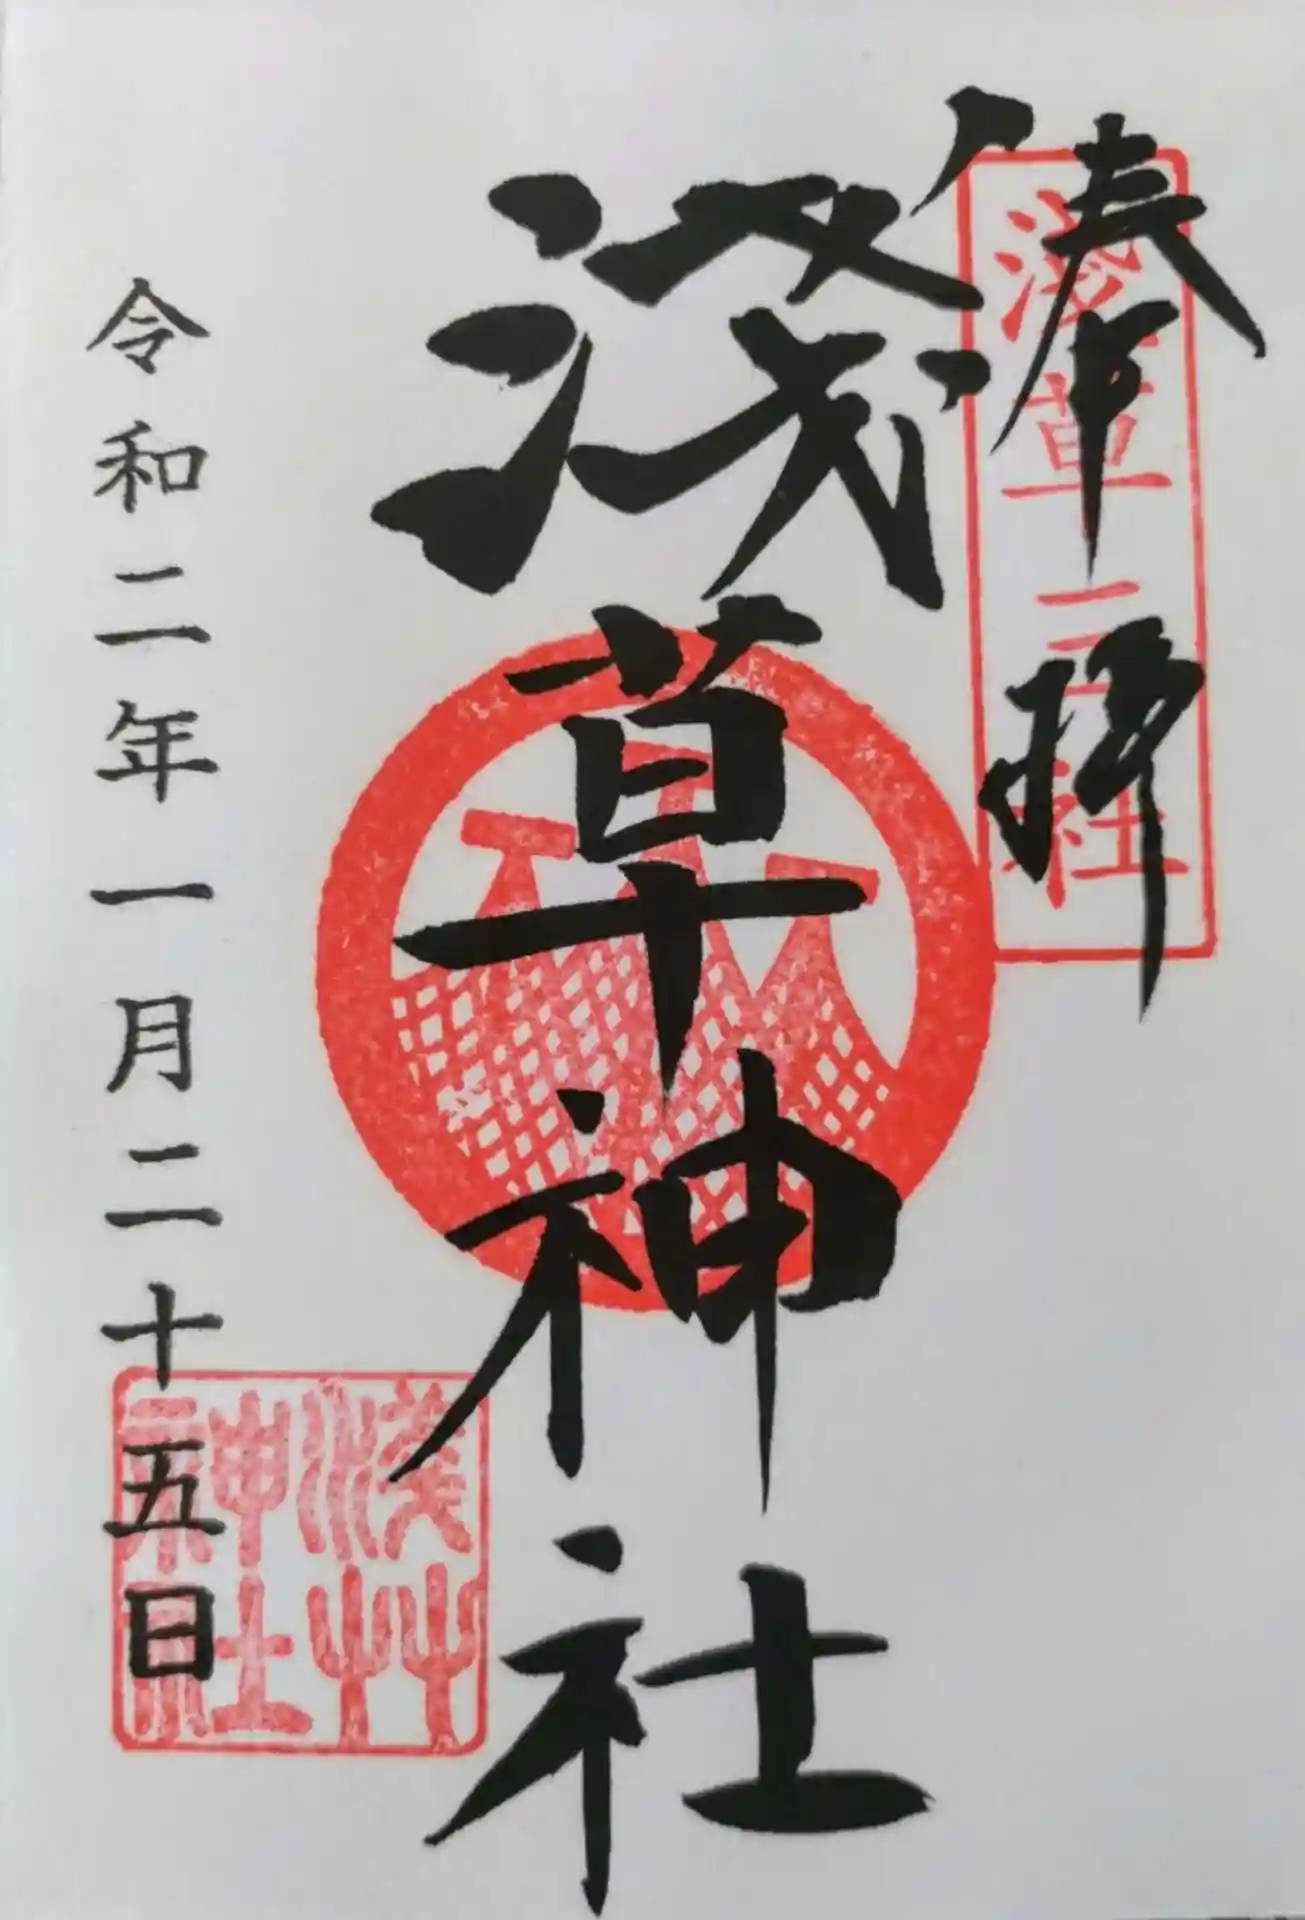 奉拝
淺草三社
淺草神社
令和二年一月二十五日
淺艸
神社